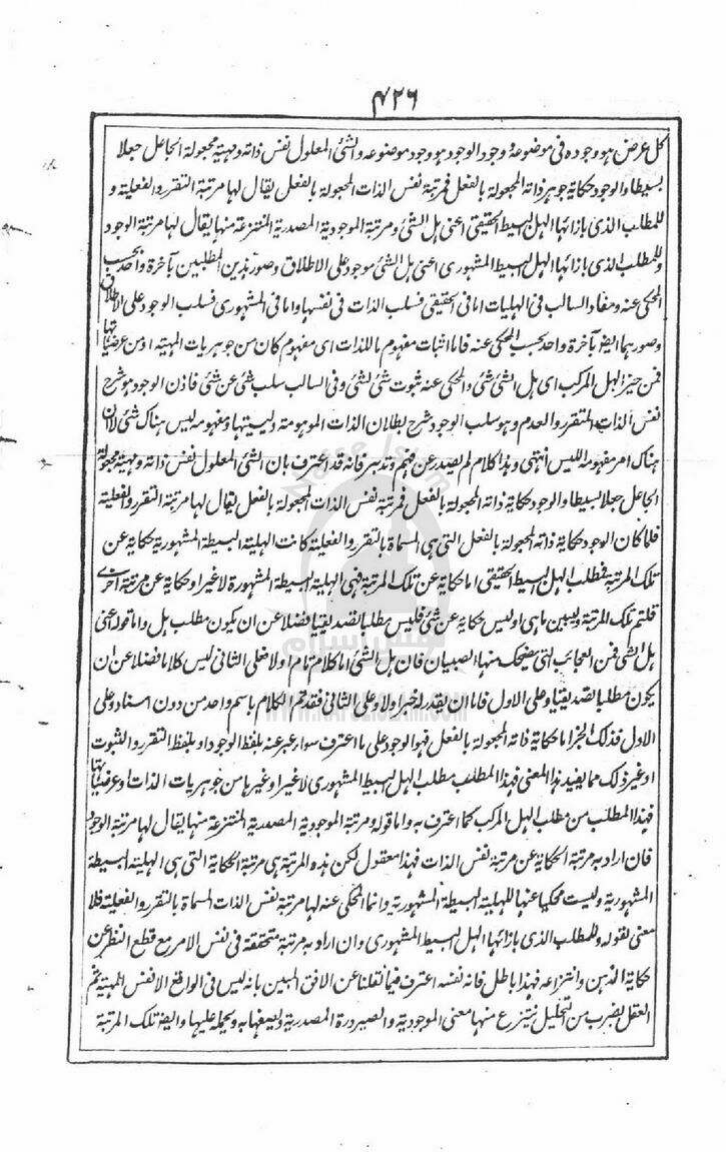 ۴۲۶
كل عرض هو وجوده فی موضوعهٔ وجود الوجود هو وجود موضوعه والشئ المعلول نفس ذاته ومهيته مجعولة الجاعل جعلا
بسيطا والوجود حكاية جوهر ذاته المجعولة بالفعل فمرتبة نفس الذات المجعولة بالفعل يقال لها مرتبة التقرر والفعلية و
للمطلب الذی بازائها الهل البسيط الحقيقی اعنی هل الشئ ومرتبة الموجودية المصدرية المنتزعة منها يقال لها مرتبة الوجود
وللمطلب الذی بازائها الهل البسيط المشهوری اعنی هل الشئ موجود علی الاطلاق وصور هذين المطلبين بآخرة واحد بحسب
المحكی عنه ومفاد السالب فی الهليات اما فی الحقيقی فسلب الذات فی نفسها واما فی المشهوری فسلب الوجود علی الاطلاق
وصورهما ايضا بآخرة واحد بحسب المحكی عنه فاما اثبات مفهوم ما للذات ای مفهوم كان من جوهريات المهية او من عرضياتها
فمن حيز الهل المركب ای هل الشئ شئ والمحكی عنه ثبوت شئ لشئ وفی السالب سلب شئ عن شئ فاذن الوجود هو شرح
نفس الذات المتقرر والعدم وهو سلب الوجود شرح بطلان الذات الموهومة وليسيتها ومفهومه ليس هناك شئ لا ان
هناك امر مفهومه الليس انتهی وهذا كلام لم يصدر عن فهم وتدبر فانه قد اعترف بان الشئ المعلول نفس ذاته ومهيته مجعولة
الجاعل جعلا بسيطا والوجود حكاية ذاته المجعولة بالفعل فمرتبة نفس الذات المجعولة بالفعل يقال لها مرتبة التقرر والفعلية
فلما كان الوجود حكاية ذاته المجعولة بالفعل التی هی المسماة بالتقرر والفعلية كانت الهلية البسيطة المشهورية حكاية عن
تلك المرتبة فمطلب الهل البسيط الحقيقی اما حكاية عن تلك المرتبة فهی الهلية البسيطة المشهورة لا غير او حكاية عن مرتبة اخری
قلتم تلك المرتبة وليبين ما هی او ليس حكاية عن شئ فليس مطلبا تصديقيا فضلا عن ان يكون مطلب هل واما قوله اعنی
هل الشئ فمن العجائب التی يضحك منها الصبيان فان هل الشئ اما كلام تام او لا فعلی الثانی ليس كلاما فضلا عن ان
يكون مطلبا تصديقيا وعلی الاول فاما ان يقدر له خبر او لا وعلی الثانی فقد تم الكلام باسم واحد من دون اسناد وعلی
الاول فذلك الخبر اما حكاية ذاته المجعولة بالفعل فهو الوجود علی ما اعترف سواء عبر عنه بلفظ الوجود او بلفظ التقرر والثبوت
او غير ذلك مما يفيد هذا المعنی فهذا المطلب مطلب الهل البسيط المشهوری لا غير او غيرها من جوهريات الذات او عرضياتها
فهذا المطلب من مطلب الهل المركب كما اعترف به واما قوله ومرتبة الموجودية المصدرية المنتزعة منها يقال لها مرتبة الوجود
فان اراد به مرتبة الحكاية عن مرتبة نفس الذات فهذا معقول لكن هذه المرتبة هی مرتبة الحكاية التی هی الهلية البسيطة
المشهورية وليست محكيا عنها للهلية البسيطة المشهورية وانما المحكی عنه لها مرتبة نفس الذات المسماة بالتقرر والفعلية فلا
معنی لقوله وللمطلب الذی بازائها الهل البسيط المشهوری وان اراد به مرتبة متحققة فی نفس الامر مع قطع النظر عن
حكاية الذهن وانتزاعه فهذا باطل فانه نفسه اعترف فيما نقلنا عن الافق المبين بانه ليس فی الواقع الا نفس المهية ثم
العقل بضرب من التحليل ينتزع منها معنی الموجودية والصيرورة المصدرية ويصفها به ويحمله عليها وايضا تلك المرتبة